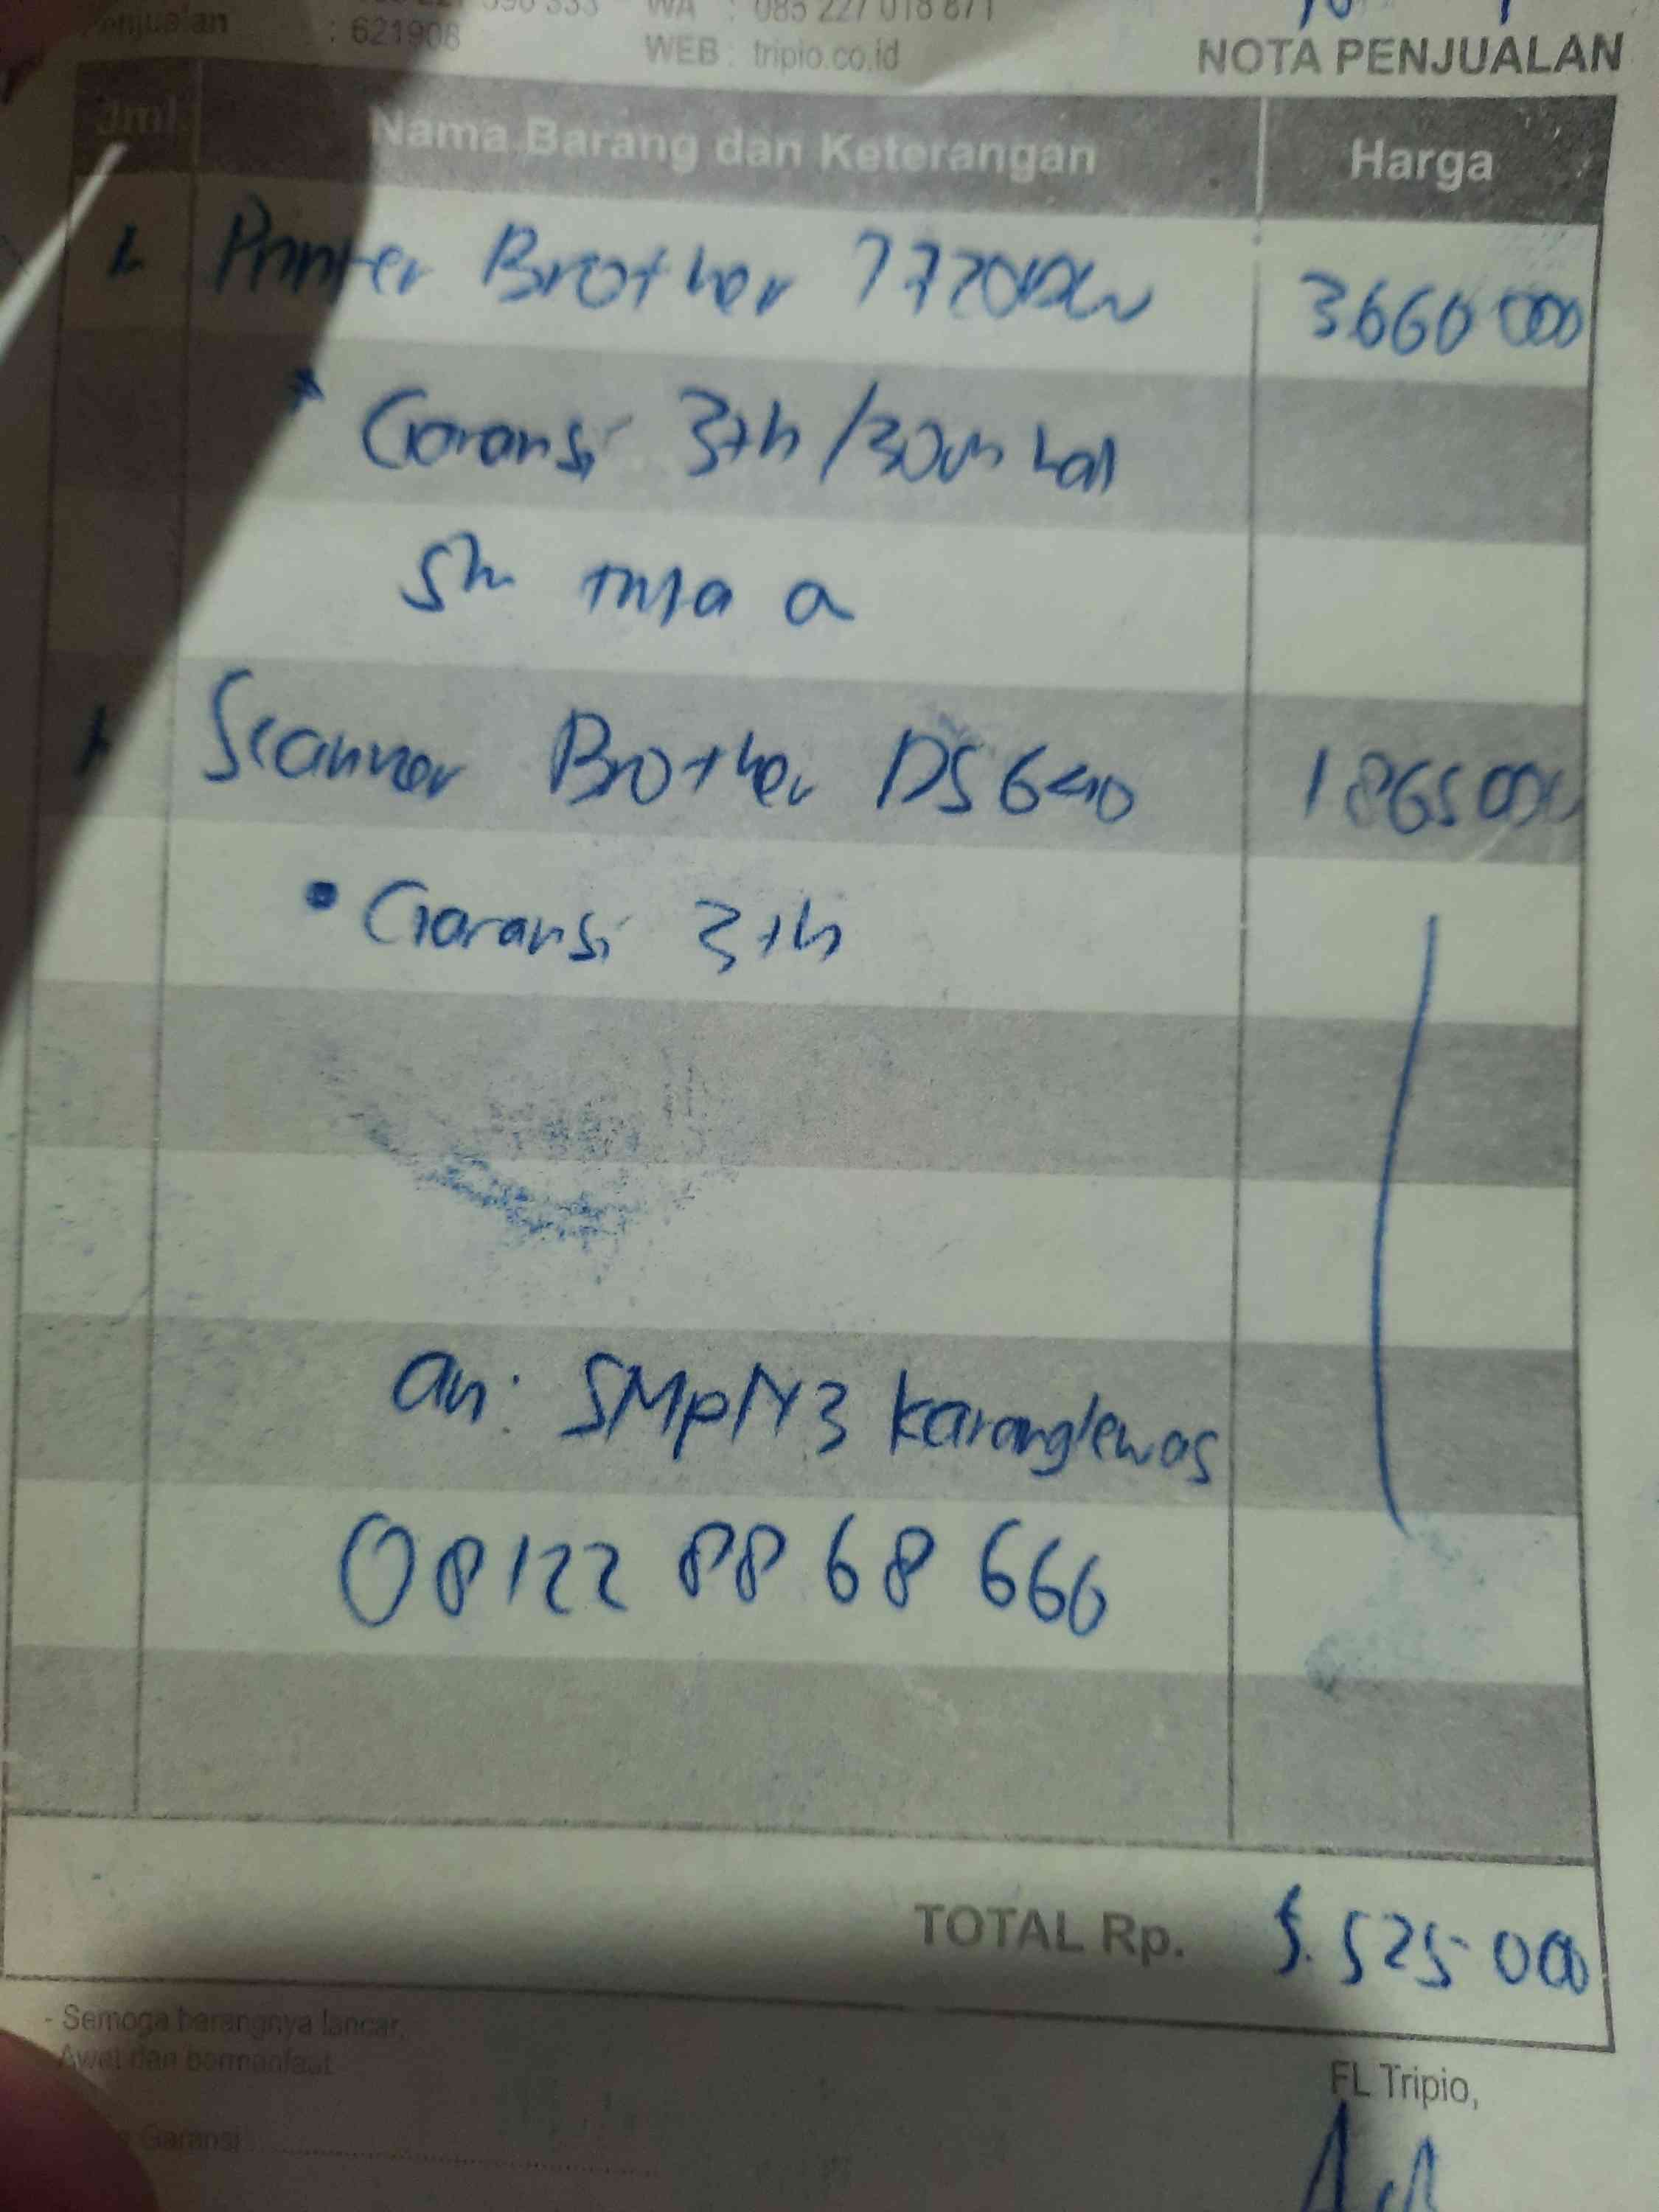 590 333 WA : 085 227 018 871
Penjualan : 621908 WEB : tripio.co.id
NOTA PENJUALAN
Jml. Nama Barang dan Keterangan Harga
1. Printer Brother 7720DW 3.660 000
* Garansi 3th / hal
Scanner Brother DS640 1 865 000
• Garansi 3th
an: SMPN 3 Karanglewas
08122 88 68 666
TOTAL Rp. 5.525 000
- Semoga barangnya lancar,
Awet dan bermanfaat
Garansi
FL Tripio,